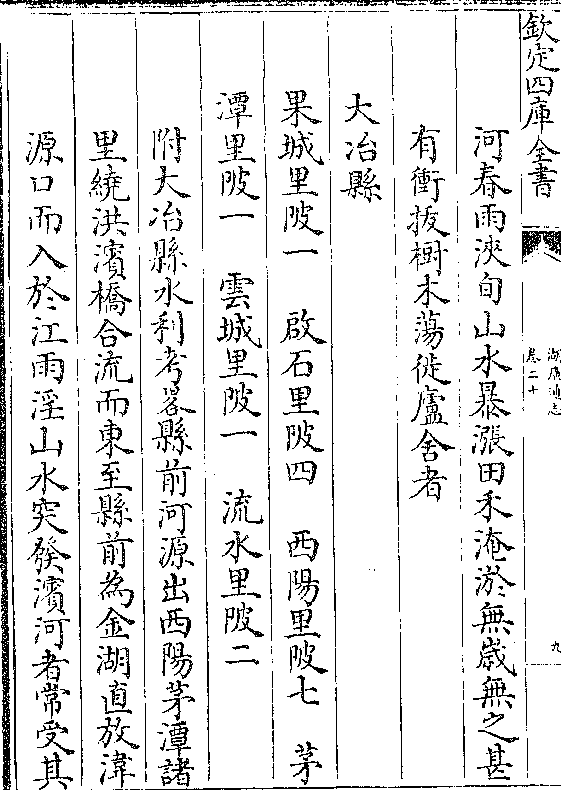 欽定四庫全書
湖廣通志
卷二十
九
河春雨浹旬山水暴漲田禾淹淤無歲無之甚
有衝拔樹木蕩徙廬舍者
大冶縣
果城里陂一 啟石里陂四 西陽里陂七 茅
潭里陂一 雲城里陂一 流水里陂二
附大冶縣水利考畧縣前河源出西陽茅潭諸
里繞洪濱橋合流而東至縣前為金湖直放湋
源口而入於江雨淫山水突發濱河者常受其